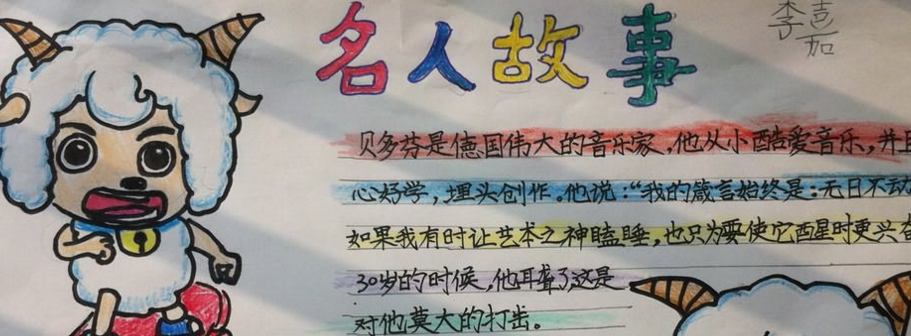 名人故事
李嘉
贝多芬是德国伟大的音乐家，他从小酷爱音乐，并且
心好学，埋头创作。他说：“我的箴言始终是：无日不动
如果我有时让艺术之神瞌睡，也只为要使它酉星时更兴奋
30岁的时候，他耳聋了，这是
对他莫大的打击。